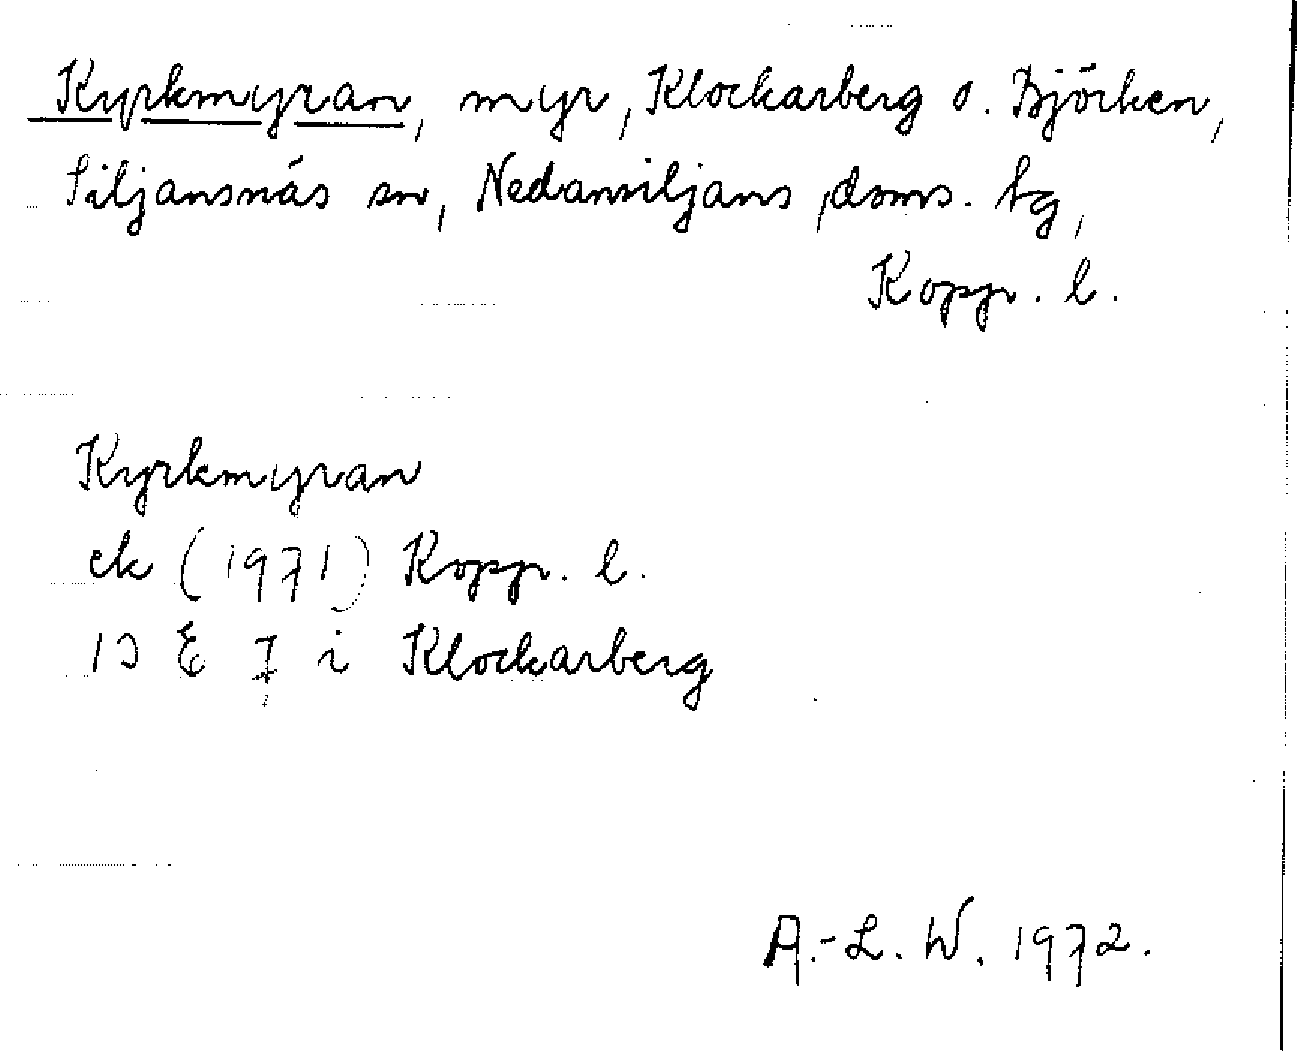 Kyrkmyran, myr, Klockarberg o. Björken,
Siljansnäs sn, Nedansiljans doms. tg,
Kopp. l.
Kyrkmyran
ek (1971) Kopp. l.
13 E 7 i Klockarberg
A.-L. W. 1972.